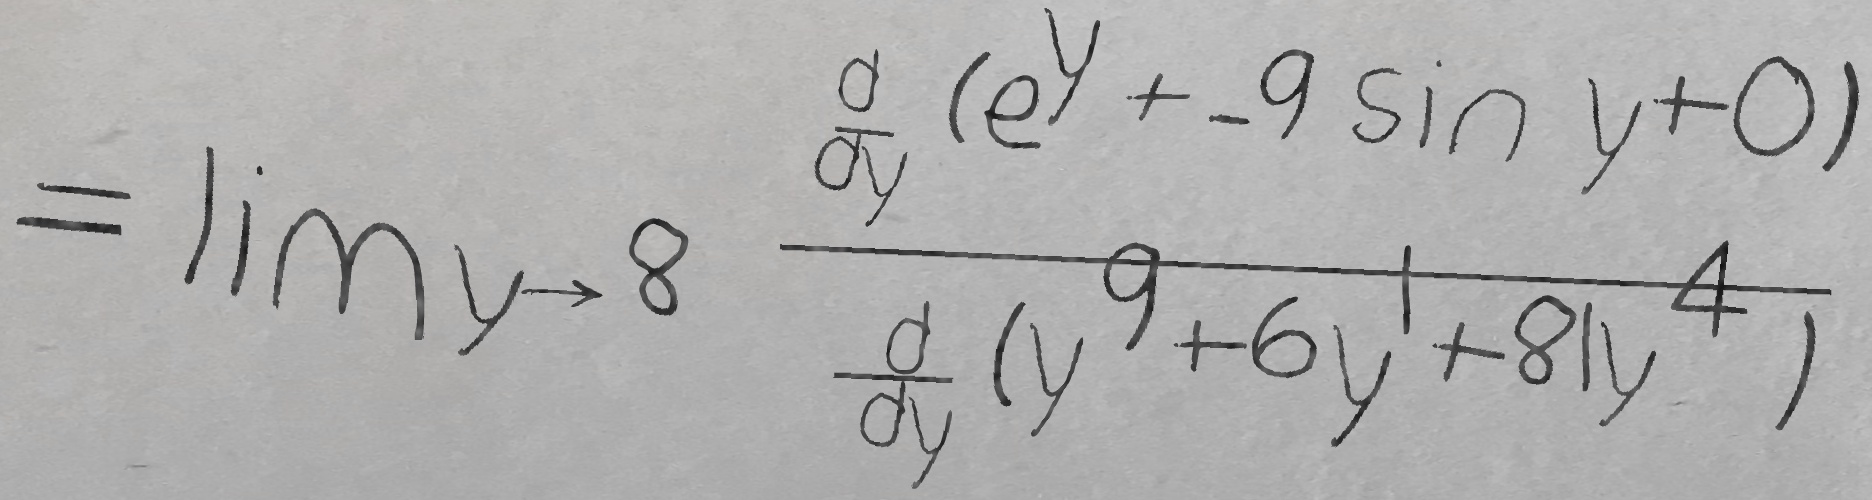 = lim y→8 \frac{\frac{d}{dy}(e^y + -9 sin y + 0)}{\frac{d}{dy}(y^9 + 6y^1 + 81y^4)}